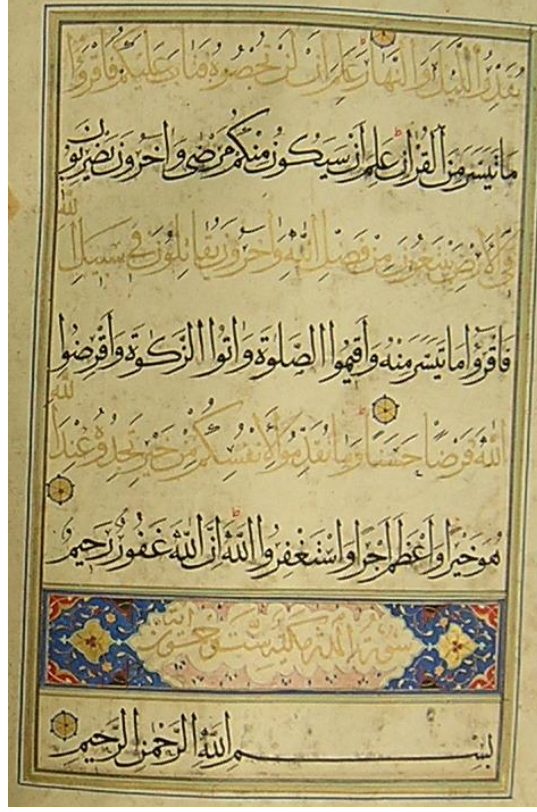 يُقَدِّرُ اللَّيْلَ وَالنَّهَارَ عَلِمَ أَنْ لَنْ تُحْصُوهُ فَتَابَ عَلَيْكُمْ فَاقْرَؤُا
مَا تَيَسَّرَ مِنَ الْقُرْآنِ عَلِمَ أَنْ سَيَكُونُ مِنْكُمْ مَرْضَى وَآخَرُونَ يَضْرِبُونَ
فِي الْأَرْضِ يَبْتَغُونَ مِنْ فَضْلِ اللَّهِ وَآخَرُونَ يُقَاتِلُونَ فِي سَبِيلِ اللَّهِ
فَاقْرَؤُا مَا تَيَسَّرَ مِنْهُ وَأَقِيمُوا الصَّلٰوةَ وَآتُوا الزَّكٰوةَ وَأَقْرِضُوا
اللَّهَ قَرْضًا حَسَنًا وَمَا تُقَدِّمُوا لِأَنْفُسِكُمْ مِنْ خَيْرٍ تَجِدُوهُ عِنْدَ اللَّهِ
هُوَ خَيْرًا وَأَعْظَمَ أَجْرًا وَاسْتَغْفِرُوا اللَّهَ إِنَّ اللَّهَ غَفُورٌ رَحِيمٌ
سورة المدثر مكية ست وخمسون آية
بِسْمِ اللَّهِ الرَّحْمٰنِ الرَّحِيمِ